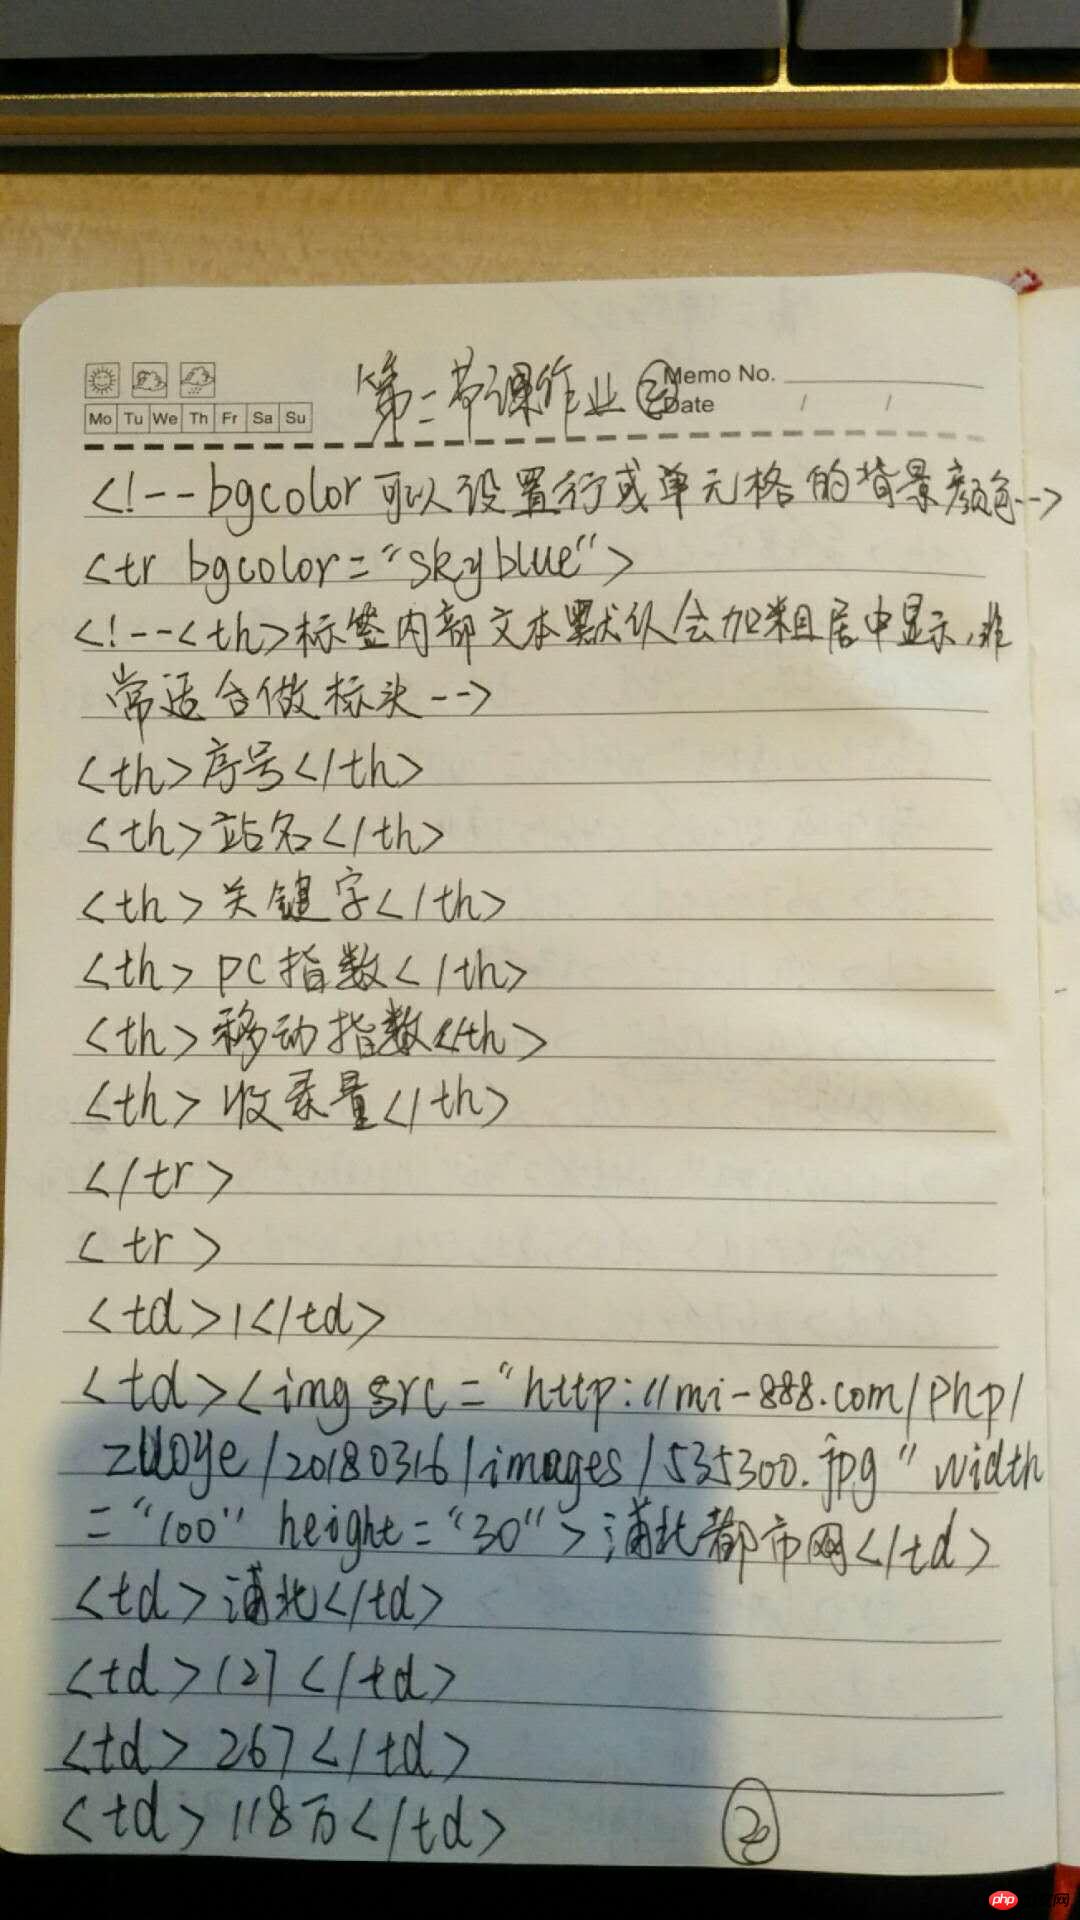 Memo No.
Mo Tu We Th Fr Sa Su
Date / /
第二节课作业②
<!--bgcolor可以设置行或单元格的背景颜色-->
<tr bgcolor="skyblue">
<!--<th>标签内部文本默认会加粗居中显示,非
常适合做标头-->
<th>序号</th>
<th>站名</th>
<th>关键字</th>
<th>PC指数</th>
<th>移动指数</th>
<th>收录量</th>
</tr>
<tr>
<td>1</td>
<td><img src="http://mi-888.com/php/
zuoye/20180316/images/535300.jpg" width
="100" height="30">浦北都市网</td>
<td>浦北</td>
<td>127</td>
<td>267</td>
<td>118万</td>
②
php